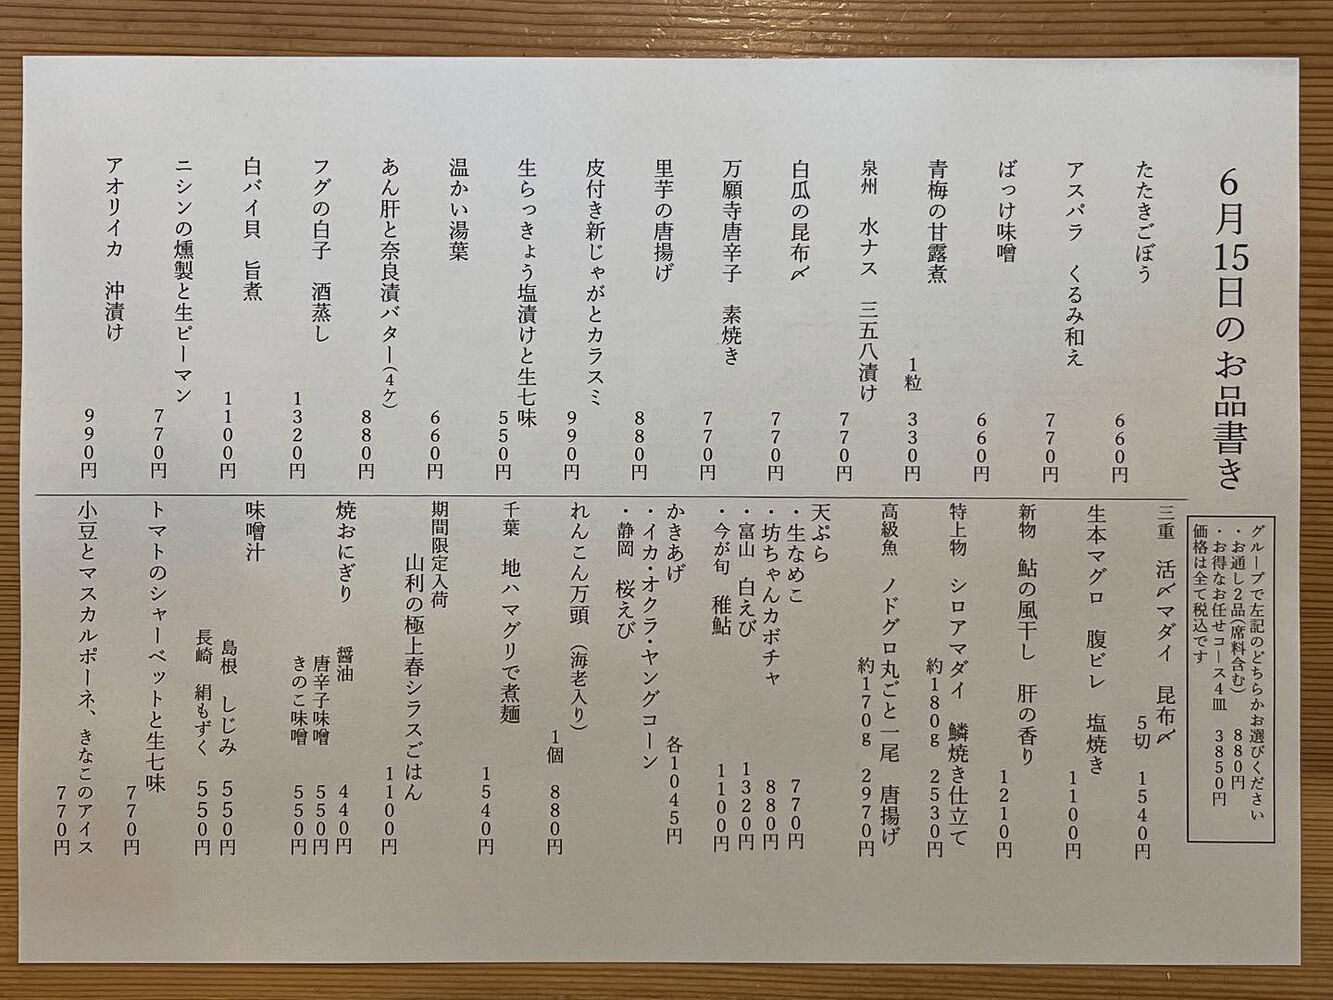 6月15日のお品書き
たたきごぼう
660円
アスパラ くるみ和え
770円
ばっけ味噌
660円
青梅の甘露煮
1粒 330円
泉州 水ナス 三五八漬け
770円
白瓜の昆布〆
770円
万願寺唐辛子 素焼き
770円
里芋の唐揚げ
880円
皮付き新じゃがとカラスミ
990円
生らっきょう塩漬けと生七味
550円
温かい湯葉
660円
あん肝と奈良漬バター(4ケ)
880円
フグの白子 酒蒸し
1320円
白バイ貝 旨煮
1100円
ニシンの燻製と生ピーマン
770円
アオリイカ 沖漬け
990円
グループで左記のどちらかお選びください
・お通し2品(席料含む) 880円
・お得なお任せコース4皿 3850円
価格は全て税込です
三重 活〆マダイ 昆布〆
5切 1540円
生本マグロ 腹ビレ 塩焼き
1100円
新物 鮎の風干し 肝の香り
1210円
特上物 シロアマダイ 鱗焼き仕立て
約180g 2530円
高級魚 ノドグロ丸ごと一尾 唐揚げ
約170g 2970円
天ぷら
・生なめこ 770円
・坊ちゃんカボチャ 880円
・富山 白えび 1320円
・今が旬 稚鮎 1100円
かきあげ 各1045円
・イカ・オクラ・ヤングコーン
・静岡 桜えび
れんこん万頭 (海老入り)
1個 880円
千葉 地ハマグリで煮麺
1540円
期間限定入荷
山利の極上春シラスごはん
1100円
焼おにぎり 醤油 440円
唐辛子味噌 550円
きのこ味噌 550円
味噌汁
島根 しじみ 550円
長崎 絹もずく 550円
トマトのシャーベットと生七味
770円
小豆とマスカルポーネ、きなこのアイス
770円